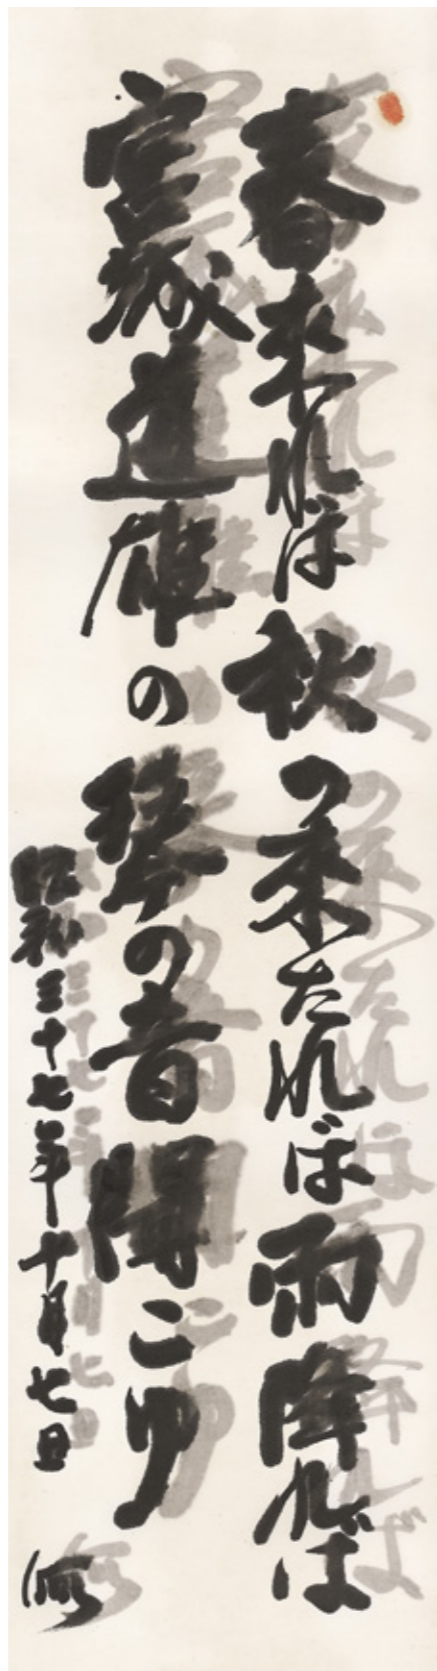 春来れば秋の来たれば雨降れば
宮城道雄の琴の音聞こゆ
昭和三十七年十月七日